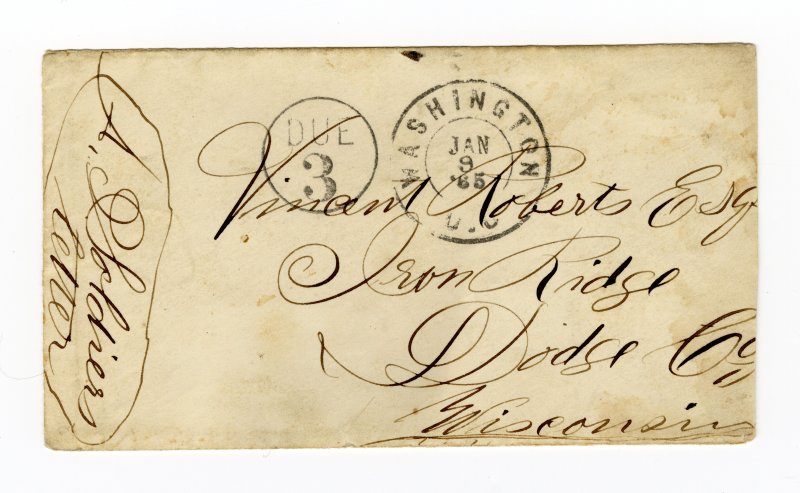 A. Sholdiers
letter
DUE
3
WASHINGTON
JAN
9
'65
D.C.
Vincent Roberts Esqr
Iron Ridge
Dodge Co
Wisconsin